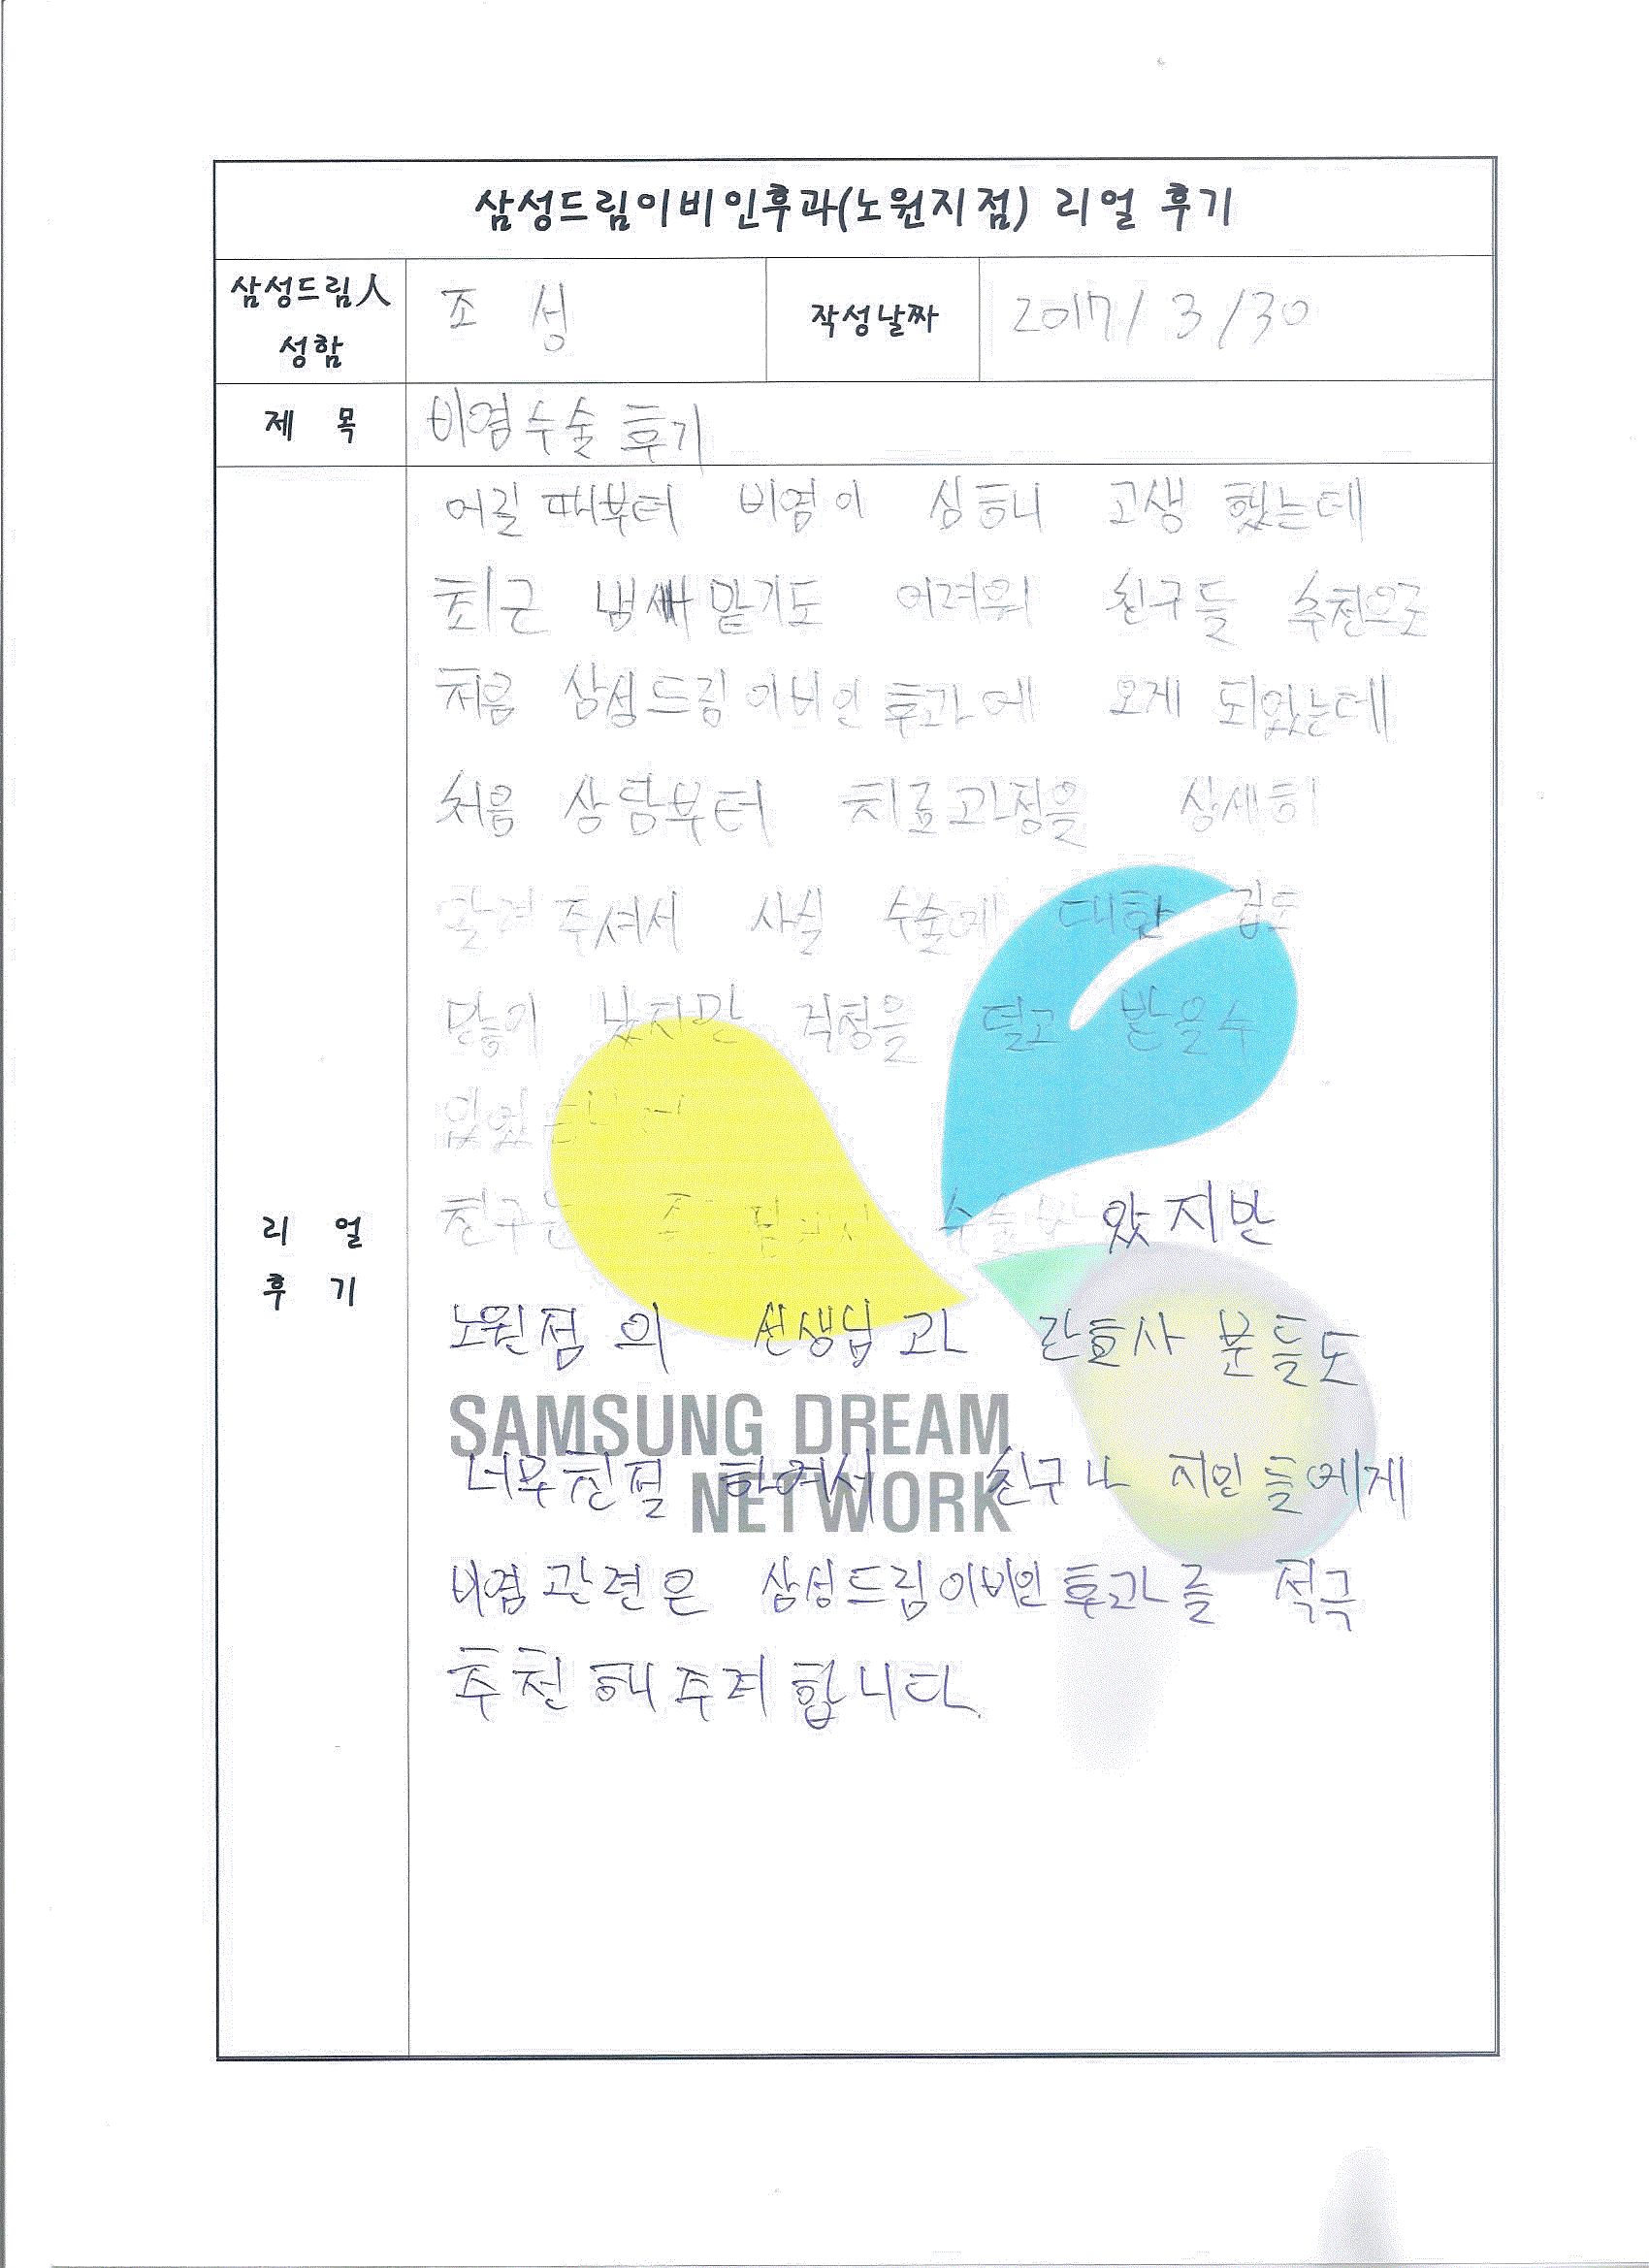 삼성드림이비인후과(노원지점) 리얼 후기
삼성드림人 성함
조 성
작성날짜
2017/3/30
제 목
비염수술 후기
리 얼 후 기
어릴 때부터 비염이 심해 고생 했는데
최근 냄새 맡기도 어려워 친구들 추천으로
처음 삼성드림이비인후과에 오게 되었는데
처음 상담부터 치료과정을 상세히
알려주셔서 사실 수술에 대한 겁도
많이 났지만 걱정을 덜고 받을수
있었습니다
친구는 수술 왔지만
노원점의 선생님과 간호사 분들도
SAMSUNG DREAM
너무친절 하여서 친구나 지인들에게
NETWORK
비염관련은 삼성드림이비인후과를 적극
추천해주려합니다.